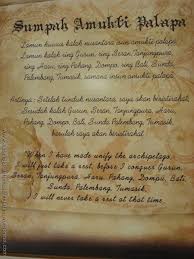 Sumpah Amukti Palapa
Lamun huwus kalah nusantara isun amukti palapa,
Lamun kalah ring Gurun, ring Seran, Tanjungpura,
ring Haru, ring Pahang, Dompo, ring Bali, Sunda,
Palembang, Tumasik, samana isun amukti palapa
Artinya : Setelah tunduk nusantara, saya akan beristirahat,
Gurun, Seran, Tanjungpura, Haru,
Pahang, Dompo, Bali, Sunda, Palembang, Tumasik,
barulah saya akan beristirahat
When I have made unify the archipelago,
I will just take a rest, before I conquer Gurun,
Seran, Tanjungpura, Haru, Pahang, Dompu, Bali,
Sunda, Palembang, Tumasik,
I will never take a rest at that time.